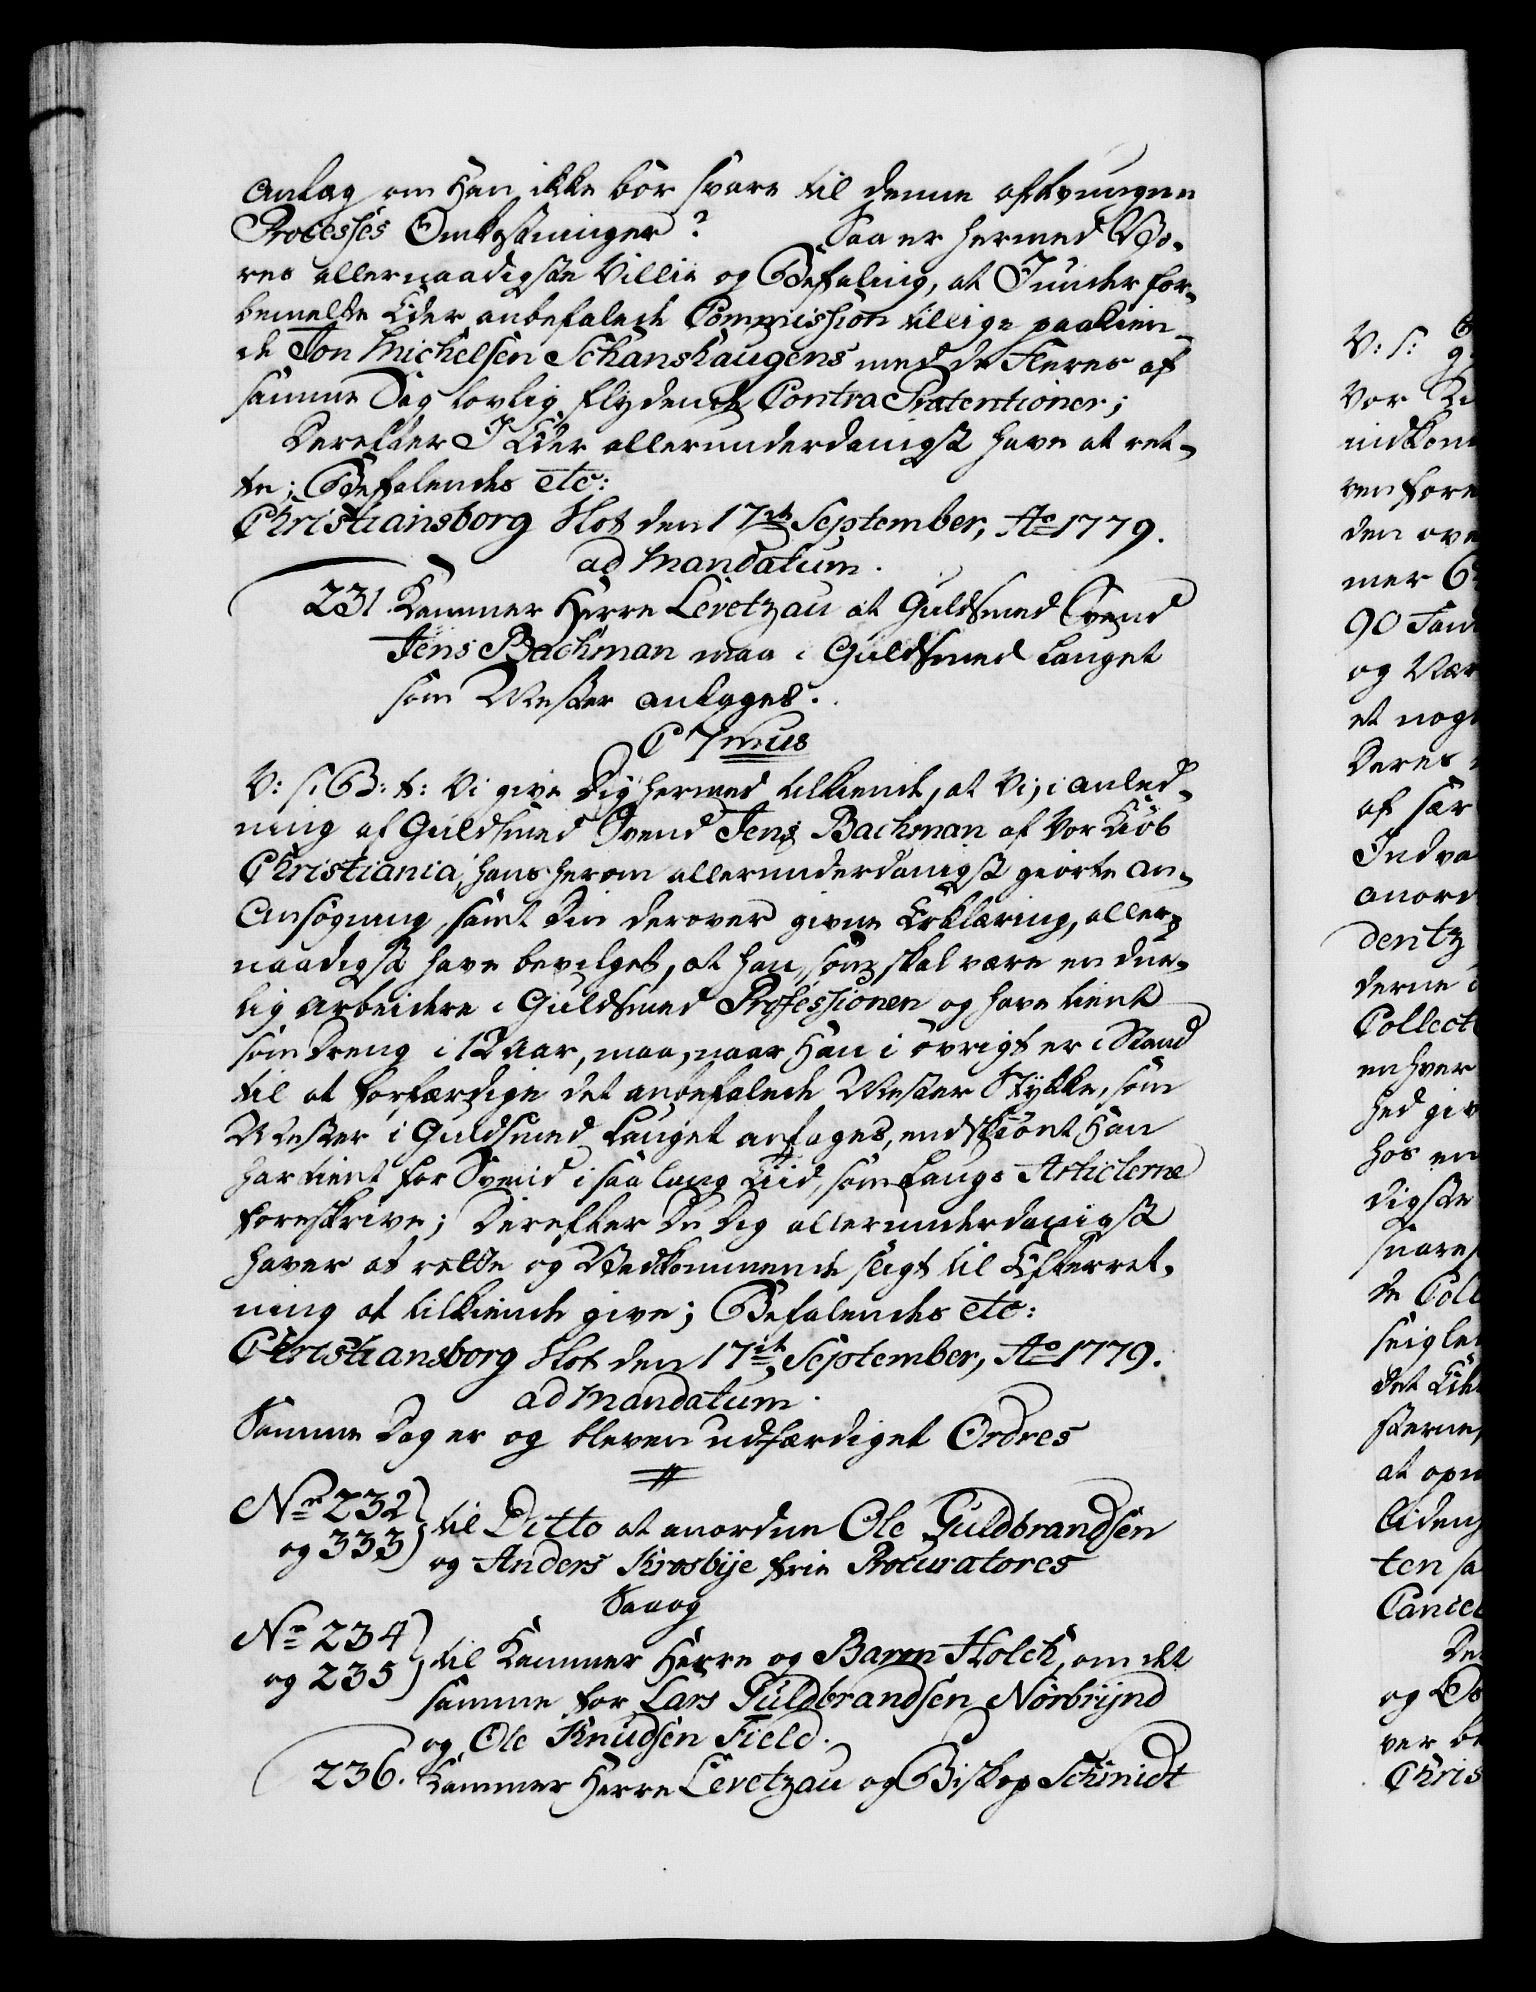 Anlæg om Han ikke bør svare til denne aftvungne
Processes Omkostninger? Saa er hermed Vo-
res allernaadigste Villie og Befaling, at I under for-
bemelte Eder anbefalede Commission tillige paakien-
de Jon Michelsen Schanshaugens med de Fleres af
samme Sag lovlig flydende Contra Prætentioner;
Derefter I Eder allerunderdanigst have at ret-
te; Befalendes etc:
Christiansborg Slot den 17de September, Ao 1779.
ad Mandatum.
231. Kammer Herre Levetzau at Guldsmed Svend
Jens Bachman maa i Guldsmed Lauget
som Mester antages.
C 7mus
V: S: G: t: Vi give Dig hermed tilkiende, at Vi, i anled-
ning af Guldsmed Svend Jens Bachman af Vor Kiøb
Christiania, hans herom allerunderdanigst giorte An-
Ansøgning, samt Din derover givne Erklæring, aller-
naadigst have bevilget, at han, som skal være en due-
lig Arbeidere i Guldsmed Professionen og have tient
som Dreng i 12 Aar, maa, naar Han i øvrigt er i Stand
til at forfærdige det anbefalede Mester Stykke, som
Mester i Guldsmed Lauget antages, endskiønt Han
har tient for Svend i saa lang Tiid, som Laugs Articlerne
foreskrive; Derefter Du Dig allerunderdanigst
haver at rette og Vedkommende sligt til Efterret-
ning at tilkiende give; Befalendes etc:
Christiansborg Slot den 17de September, Ao 1779.
ad Mandatum.
Samme Dag er og bleven udfærdiget Ordres
Nr 232
og 333) til Ditto at anordne Ole Guldbrandsen
og Anders Krosbÿe frie Procuratores
Saa og
Nr 234
og 235) til Kammer Herre og Baron Holck, om det
samme for Lars Guldbrandsen Nørbrÿnd
og Ole Knudsen Field.
236. Kammer Herre Levetzau og Biskop Schmidt
V: S:
Vor
indkom
ren fore
den ove
mer
90
og Vær
et nog
Deres
af sær
Indva
anord
dentz
derne
Collect
en hver
hed giv
hos en
digste
svares
de Coll
seigle
det
sterne,
at opn
tiden
ten sa
Cancel
De
og
ver be
Chris